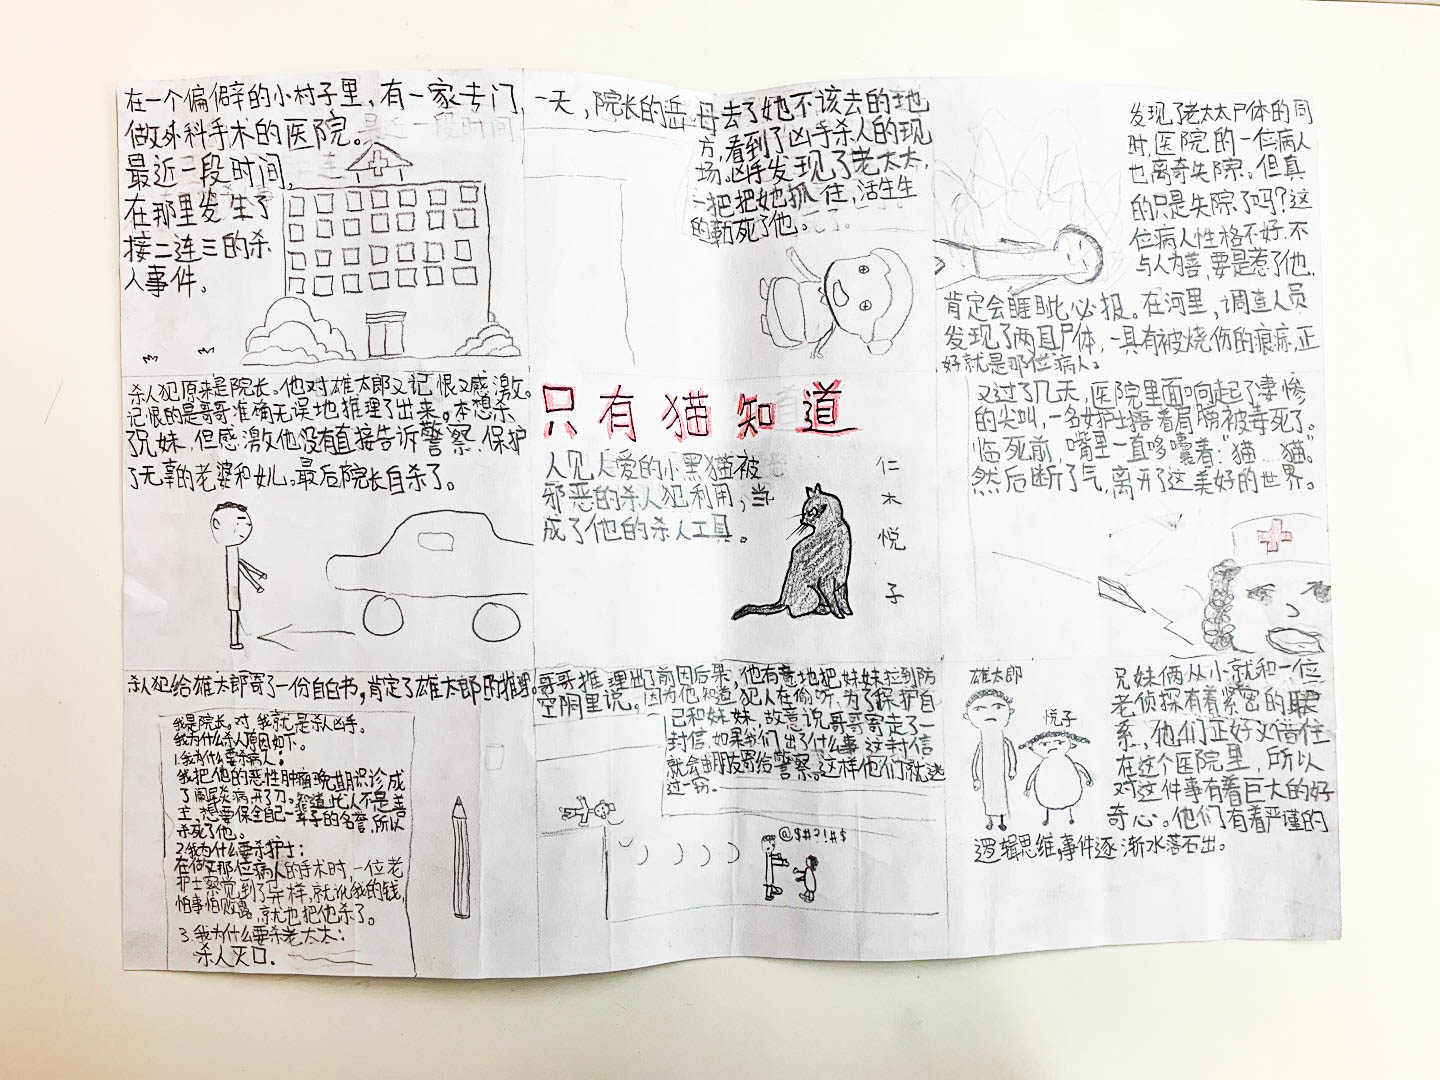 在一个偏僻的小村子里，有一家专门
做外科手术的医院。
最近一段时间，
在那里发生了
接二连三的杀
人事件。
一天，院长的岳母去了她不该去的地
方，看到了凶手杀人的现
场。凶手发现了老太太，
一把把她抓住，活生生
的勒死了他。
发现了老太太尸体的同
时，医院的一位病人
也离奇失院。但真
的只是失院了吗？这
位病人性格不好，不
与人为善，要是惹了他，
肯定会睚眦必报。在河里，调查人员
发现了两具尸体，一具有被烧伤的痕迹，正
好就是那位病人。
杀人犯原来是院长。他对雄太郎又记恨又感激。
记恨的是哥哥准确无误地推理了出来。本想杀
了兄妹，但感激他没有直接告诉警察，保护
了无辜的老婆和女儿。最后院长自杀了。
只有猫知道
人见人爱的小黑猫被
邪恶的杀人犯利用，当
成了他的杀人工具。
仁木悦子
又过了几天，医院里面响起了凄惨
的尖叫，一名女护士捂着肩膀被毒死了。
临死前，嘴里一直哆囔着：“猫…猫”。
然后断了气，离开了这美好的世界。
杀人犯给雄太郎寄了一份自白书，肯定了雄太郎的推理。
我是院长。对，我就是杀人凶手。
我为什么杀人原因如下。
1.我为什么要杀病人：
我把他的恶性肿瘤晚期误诊成
了阑尾炎病开了刀。知道此人不是善
主，想要保全自己一辈子的名誉，所以
杀死了他。
2.我为什么要杀护士：
在做那位病人的手术时，一位老
护士察觉到了异样，就讹我的钱，
怕事怕败露，就也把他杀了。
3.我为什么要杀老太太：
杀人灭口。
哥哥推理出了前因后果，他有意地把妹妹拉到防
空洞里说。因为他知道，犯人在偷听，为了保护自
己和妹妹，故意说哥哥寄走了一
封信，如果我们出了什么事，这封信
就会由朋友寄给警察。这样他们就逃
过一劫。
@$#?!#$
雄太郎
悦子
兄妹俩从小就和一位
老侦探有着紧密的联
系，他们正好又借住
在这个医院里，所以
对这件事有着巨大的好
奇心。他们有着严谨的
逻辑思维，事件逐渐水落石出。